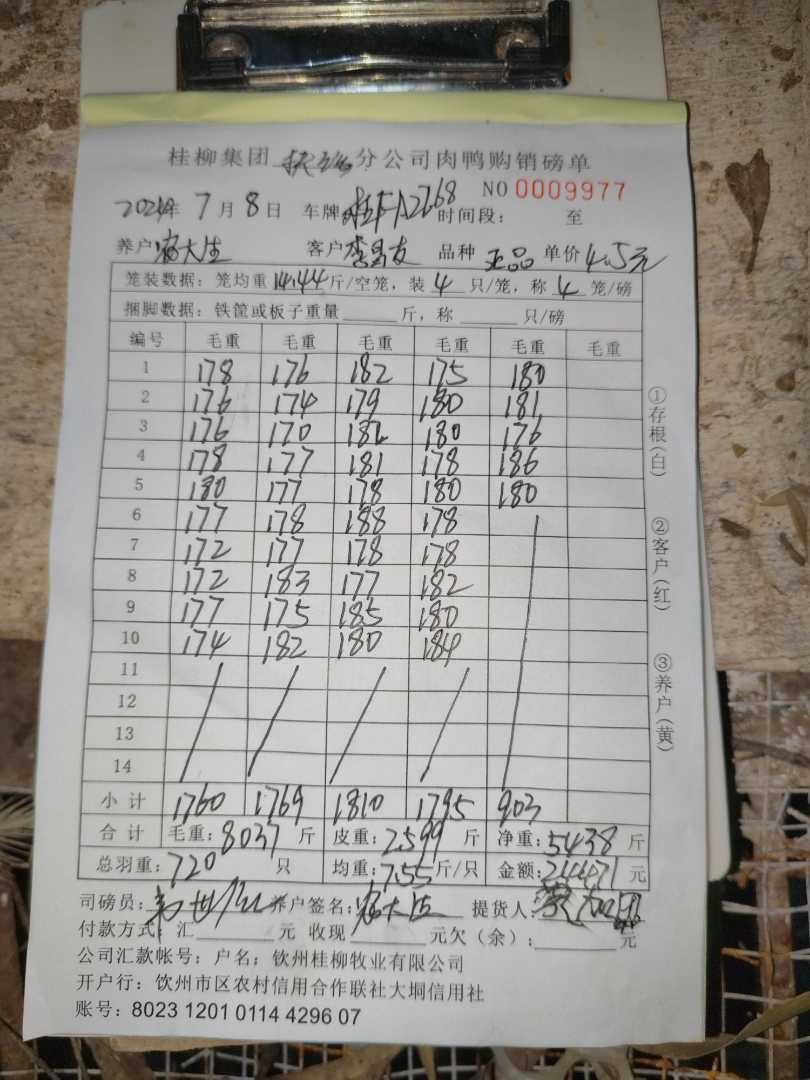 桂柳集团 分公司肉鸭购销磅单
NO 0009977
2024年 7月8日 车牌 时间段： 至
养户 大 客户 李 友 品种 正品 单价 4.5元
笼装数据：笼均重 14.44 斤/空笼，装 4 只/笼，称 4 笼/磅
捆脚数据：铁筐或板子重量 斤，称 只/磅
编号 毛重 毛重 毛重 毛重 毛重 毛重
1 178 176 182 175 180
2 176 174 179 180 181
3 176 170 182 180 176
4 178 177 181 178 186
5 180 177 178 180 180
6 177 178 188 178
7 172 177 178 178
8 172 183 177 182
9 177 175 185 180
10 174 182 180 184
11
12
13
14
小计 1760 1769 1810 1795 903
合计 毛重：8037斤 皮重：2599斤 净重：5438斤
总羽重：720只 均重：7.55斤/只 金额：24471元
司磅员： 养户签名： 大 提货人：
付款方式：汇 元 收现 元欠（余）： 元
公司汇款帐号：户名；钦州桂柳牧业有限公司
开户行：钦州市区农村信用合作联社大垌信用社
账号：8023 1201 0114 4296 07
①存根(白)
②客户(红)
③养户(黄)